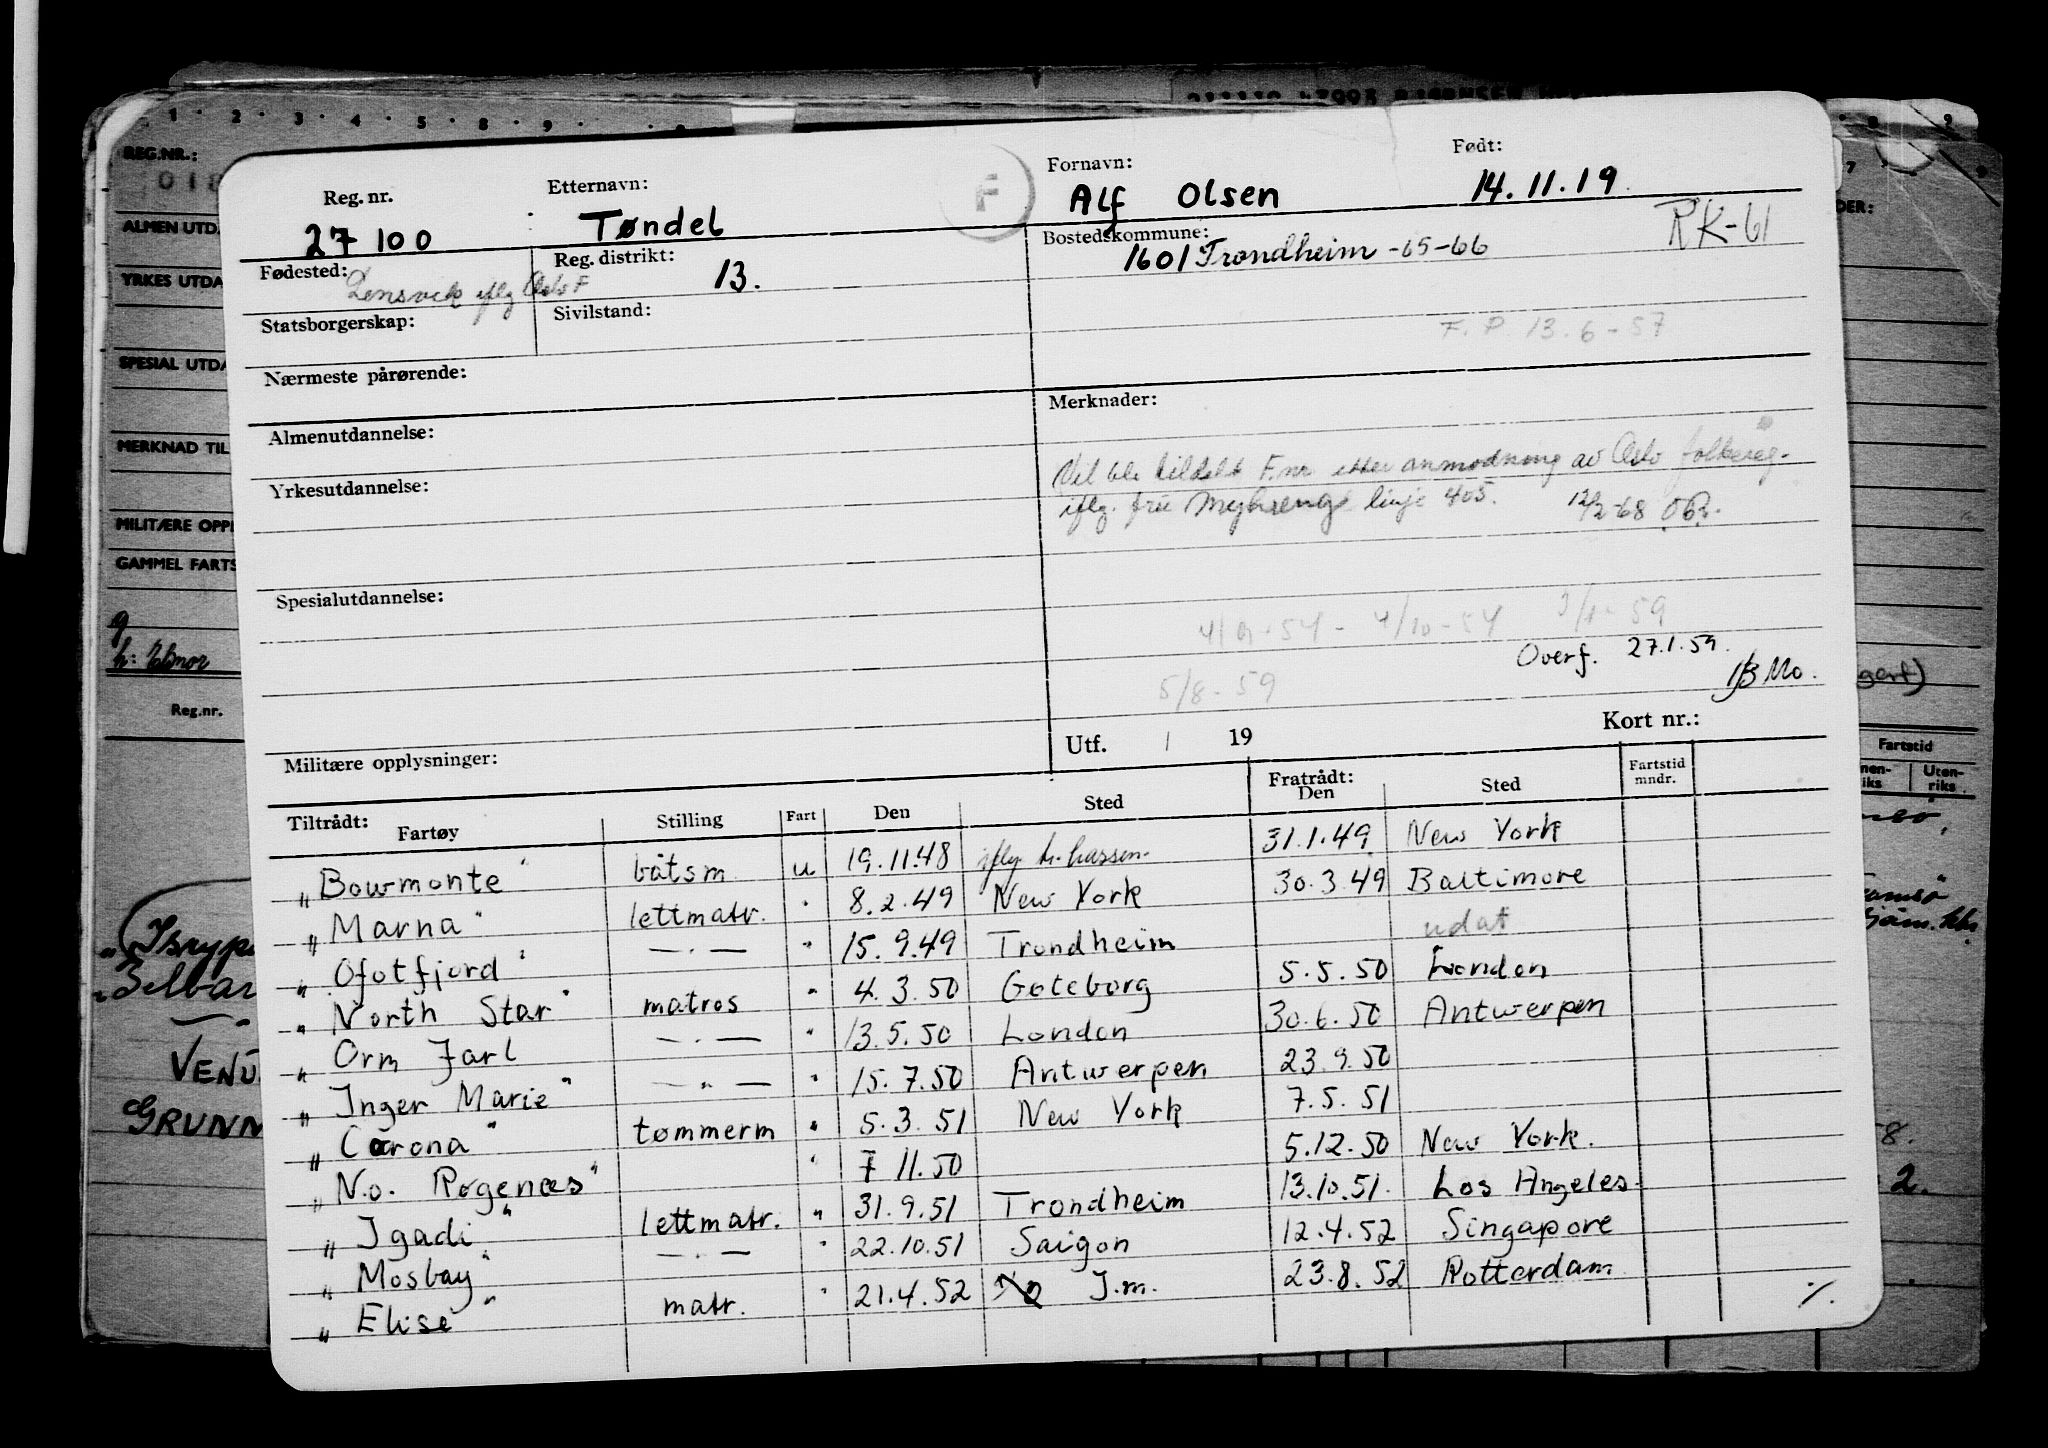 1 · 2 · 3 · 4 · 5 · 8 · 9
REG.NR.:
018
ALMEN UTD
YRKES UTDA
SPESIAL UTDA
MERKNAD TIL
MILITÆRE OPPL
GAMMEL FARTS
Reg.nr.
VENU
GRUNN
DER:
Fartstid
Uten-
riks
Reg. nr. Etternavn: F Fornavn: Født:
27100 Tøndel Alf Olsen 14.11.19
Fødested: Reg. distrikt: Bostedskommune: RK-61
Lensvik iflg Oslo F 13. 1601 Trondheim -65-66
Statsborgerskap: Sivilstand:
F. P. 13.6-57
Nærmeste pårørende:
Merknader:
Almenutdannelse:
Vil ble tildelt F.nr etter anmodning av Oslo folkereg.
Yrkesutdannelse:
iflg. fru linje 405. 12/2-68
Spesialutdannelse:
4/9-54 - 4/10-54 3/1-59
Overf. 27.1.59.
5/8-59 Mo.
Militære opplysninger: Utf. / 19 Kort nr.:
Tiltrådt: Fartøy Stilling Fart Den Sted Fratrådt: Den Sted Fartstid mndr.
"Bowmonte" båtsm u 19.11.48 iflg 31.1.49 New York
"Marna" lettmatr. " 8.2.49 New York 30.3.49 Baltimore
"Ofotfjord" —.— " 15.9.49 Trondheim udat
"North Star" matros " 4.3.50 Gøteborg 5.5.50 London
"Orm Jarl —.— " 13.5.50 London 30.6.50 Antwerpen
"Inger Marie" —"— " 15.7.50 Antwerpen 23.9.50
"Corona" tømmerm " 5.3.51 New York 7.5.51
"N.o. Rogenæs" " 7 11.50 5.12.50 New York.
"Igadi" lettmatr. " 31.9.51 Trondheim 13.10.51. Los Angeles.
"Mosbay" —.— " 22.10.51 Saigon 12.4.52 Singapore
"Elise" matr. " 21.4.52 J.m. 23.8.52 Rotterdam